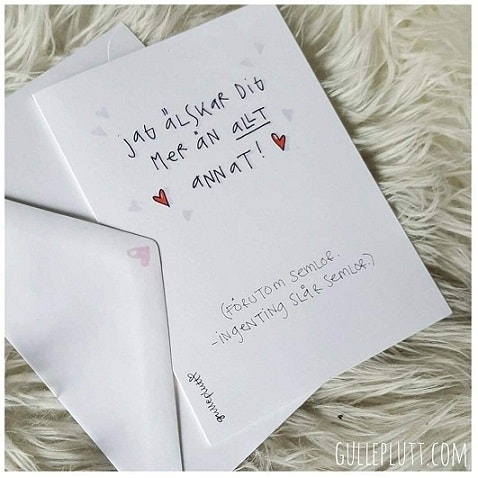 jag ÄLSKAR Dig
MER ÄN ALLT
ANNAT!
(FÖRUTOM SEMLOR.
-INGENTING SLÅR SEMLOR.)
gulleplutt
GULLEPLUTT.COM